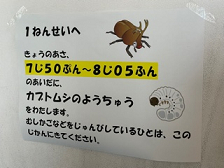 1ねんせいへ
きょうのあさ、
7じ50ぷん～8じ05ふん
のあいだに、
カブトムシのようちゅう
をわたします。
むしかごなどをじゅんびしているひとは、この
じかんにきてください。